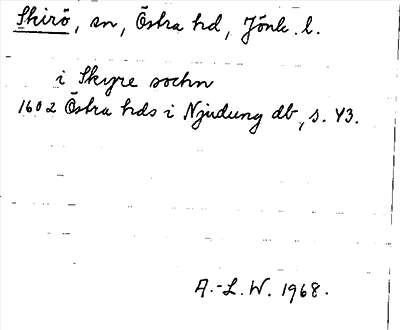 Skirö, sn, Östra hd, Jönk. l.
i Skyre sochn
1602 Östra hds i Njudung db, s. 43.
A.-L.W. 1968.